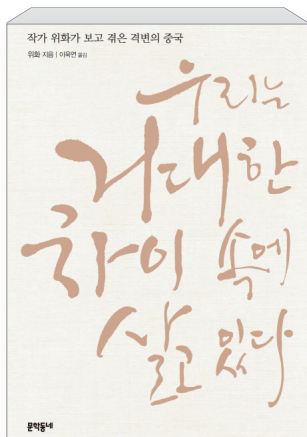 작가 위화가 보고 겪은 격변의 중국
위화 지음 | 이욱연 옮김
우리는
거대한
차이 속에
살고 있다
문학동네